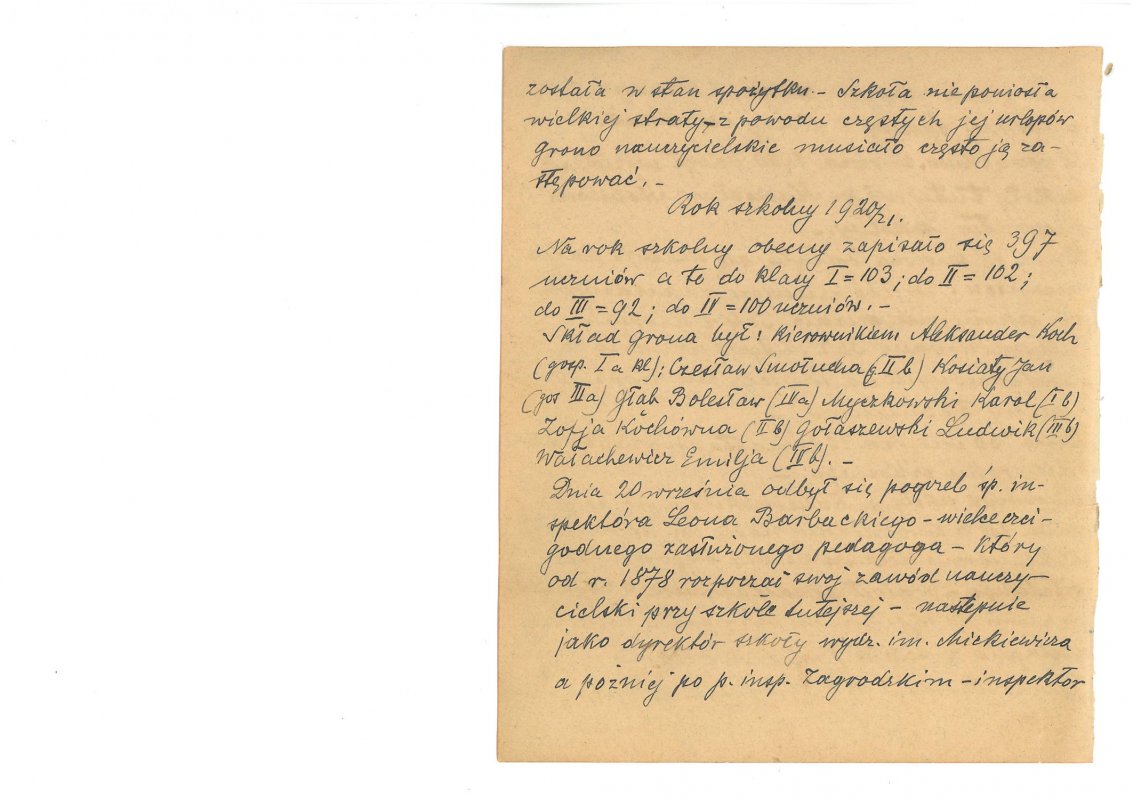 została w stan spożytku. - Szkoła nieponiosła
wielkiej straty, z powodu częstych jej urlopów
grono nauczycielskie musiało często ją za-
stępować. -
Rok szkolny 1920/21.
Na rok szkolny obecny zapisało się 397
uczniów a to do klasy I = 103; do II = 102;
do III = 92; do IV = 100 uczniów. -
Skład grona był: kierownikiem Aleksander Koch
(gosp. I a kl); Czesław Smołucha (II b) Kosiaty Jan
(gos IIIa) Głąb Bolesław (IVa) Myczkowski Karol (I b)
Zofja Kochówna (II b) Gołaszewski Ludwik (III b)
Wałachewicz Emilja (IV b). -
Dnia 20 września odbył się pogrzeb śp. in-
spektóra Leona Barbackiego - wielce czci-
godnego zasłużonego pedagoga - który
od r. 1878 rozpoczął swój zawód nauczy-
cielski przy szkole tutejszej - następnie
jako dyrektór szkoły wydz. im. Mickiewicza
a później po p. insp. Zagrodzkim - inspektor